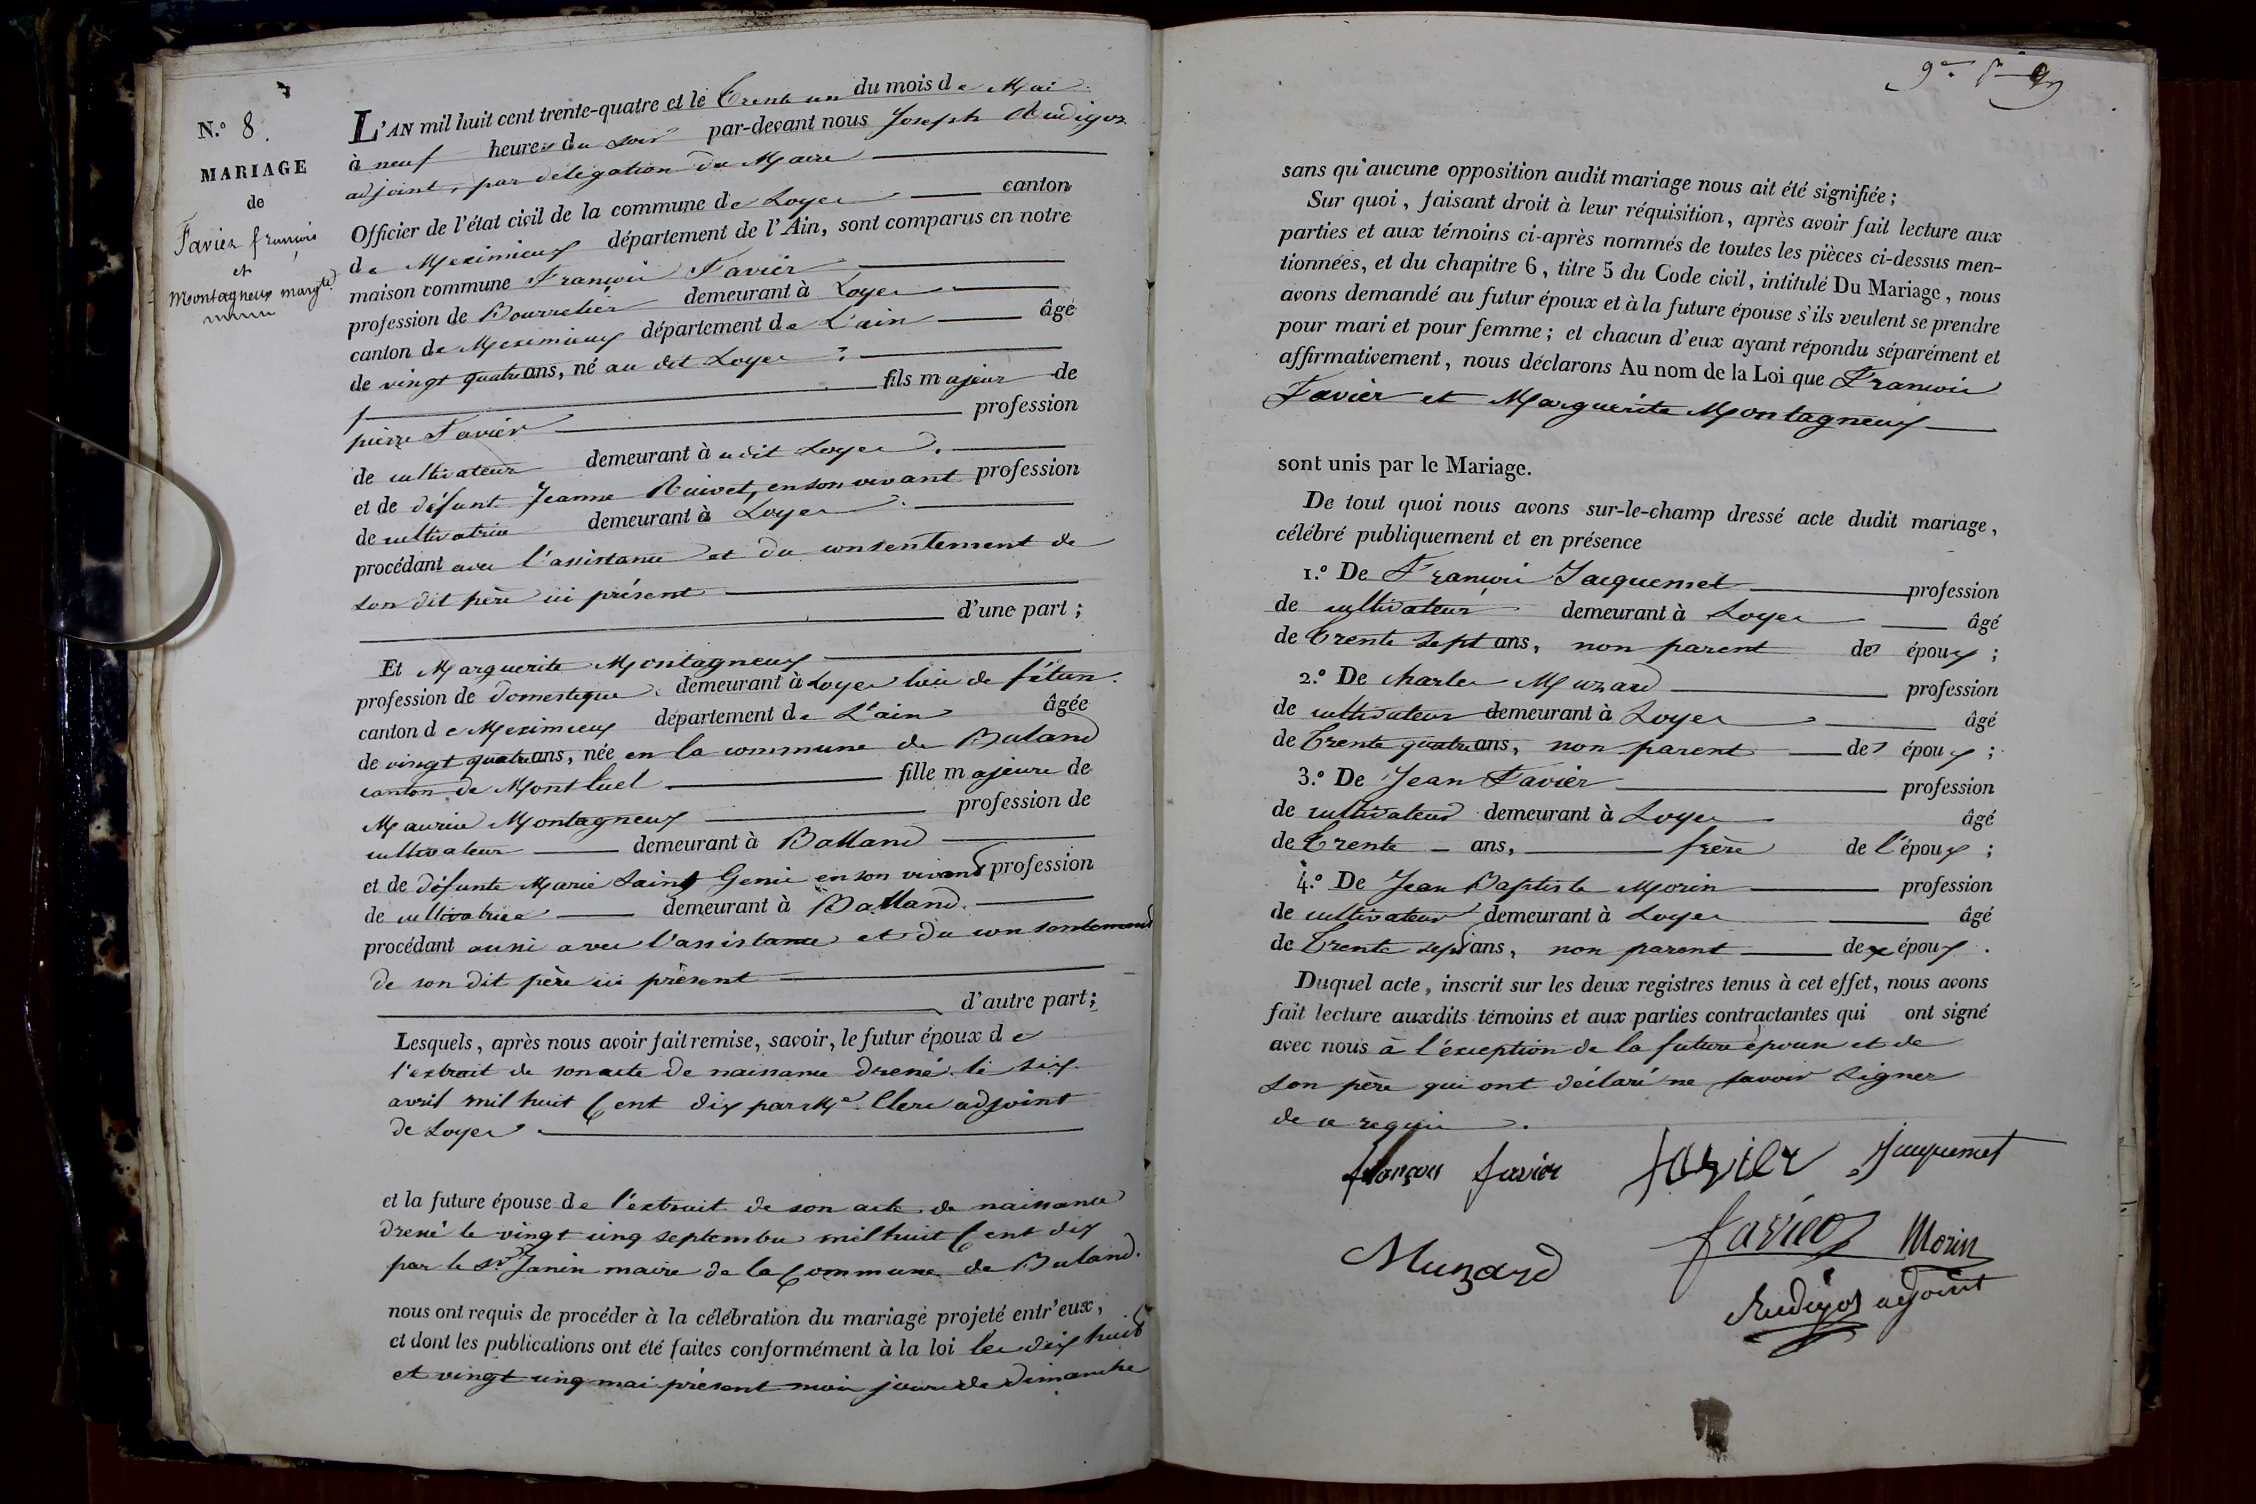 N.º 8.
MARIAGE
de
Favier françois
et
Montagneux margte
L'AN mil huit cent trente-quatre et le Trente un du mois de Mai
à neuf heures du soir par-devant nous Joseph Rudigoz
adjoint, par délégation du Maire
Officier de l'état civil de la commune de Loyes canton
de Meximieux département de l'Ain, sont comparus en notre
maison commune François Favier
profession de Bourrelier demeurant à Loyes
canton de Meximieux département de L'ain âgé
de vingt quatre ans, né au dit Loyes
fils majeur de
pierre Favier profession
de cultivateur demeurant à udit Loyes.
et de défunte Jeanne Ruivet, en son vivant profession
de cultivatrice demeurant à Loyes
procédant avec l'assistance et du consentement de
son dit père ici présent
d'une part ;
Et Marguerite Montagneux
profession de Domestique demeurant à Loyes lieu de fétan.
canton de Meximieux département de L'ain âgée
de vingt quatre ans, née en la commune de Baland
canton de Montluel fille majeure de
Maurice Montagneux profession de
cultivateur demeurant à Balland
et de défunte Marie Saint Genie en son vivant profession
de cultivatrice demeurant à Balland.
procédant aussi avec l'assistance et du consentement
de son dit père ici présent
d'autre part ;
Lesquels, après nous avoir fait remise, savoir, le futur époux de
l'extrait de son acte de naissance dressé le six
avril mil huit Cent dix par Me. Clerc adjoint
de Loyes
et la future épouse de l'extrait de son acte de naissance
dressé le vingt cinq septembre mil huit Cent dix
par le Sr. Janin maire de la Commune de Baland.
nous ont requis de procéder à la célébration du mariage projeté entr'eux,
et dont les publications ont été faites conformément à la loi les dix huit
et vingt cinq mai présent mois jours de Dimanche
sans qu'aucune opposition audit mariage nous ait été signifiée ;
Sur quoi, faisant droit à leur réquisition, après avoir fait lecture aux
parties et aux témoins ci-après nommés de toutes les pièces ci-dessus men-
tionnées, et du chapitre 6, titre 5 du Code civil, intitulé Du Mariage, nous
avons demandé au futur époux et à la future épouse s'ils veulent se prendre
pour mari et pour femme ; et chacun d'eux ayant répondu séparément et
affirmativement, nous déclarons Au nom de la Loi que François
Favier et Marguerite Montagneux
sont unis par le Mariage.
De tout quoi nous avons sur-le-champ dressé acte dudit mariage,
célébré publiquement et en présence
1.º De François Jacquemet profession
de cultivateur demeurant à Loyes âgé
de Trente sept ans, non parent des époux ;
2.º De Charles Muzard profession
de cultivateur demeurant à Loyes âgé
de Trente quatre ans, non parent des époux ;
3.º De Jean Favier profession
de cultivateur demeurant à Loyes âgé
de Trente ans, frère de l'époux ;
4.º De Jean Baptiste Morin profession
de cultivateur demeurant à Loyes âgé
de Trente sept ans, non parent des époux.
Duquel acte, inscrit sur les deux registres tenus à cet effet, nous avons
fait lecture auxdits témoins et aux parties contractantes qui ont signé
avec nous à l'exception de la future épouse et de
son père qui ont déclaré ne savoir signer
de ce requis.
françois favier favier Jacquemet
Muzard favier Morin
Rudigoz adjoint